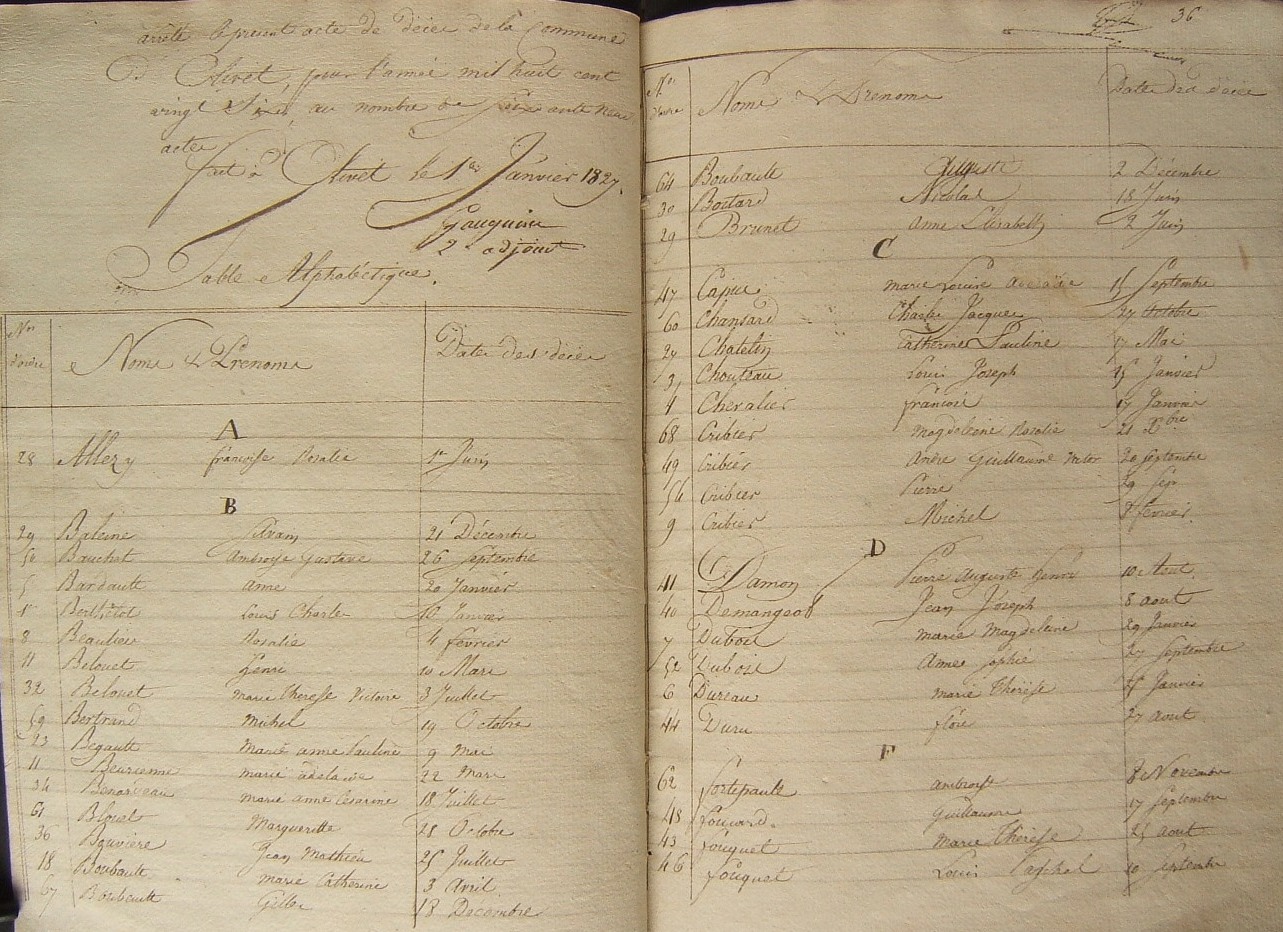 arrêté le present acte de décès de la Commune
D'Olivet, pour l'année mil huit cent
vingt Six, au nombre de Soixante neuf
actes
fait à Olivet le 1er Janvier 1827.
2e adjoint
Table Alphabétique.
Nos d'ordre Noms & Prénoms Date des décès
A
28 Allezy françoise Rosalie 1er Juin
B
Baleine 21 Décembre
50 Bauchet Ambroise Gustave 26 Septembre
5 Bardault anne 20 Janvier
1er Berthelot Louis Charles 10 Janvier
8 Beaulieu Rosalie 4 février
11 Belouet henri 10 Mars
32 Belouet marie therese Victoire 3 Juillet
59 Bertrand Michel 19 Octobre
23 Begault Marie anne Pauline 9 mai
11 Beurienne marie adelaide 22 Mars
34 Benarveau marie anne Cesarine 18 Juillet
61 Blouet Marguerette 28 Octobre
36 Bouviere Jean Mathieu 25 Juillet
18 Boubault marie Catherine 3 Avril
67 Boubault Gilles 18 Decembre
36
Nos d'ordre Noms & Prenoms Date des décès
64 Boubault Auguste 2 Décembre
30 Boitard Nicolas 15 Juin
29 Brunet anne Elisabeth 2 Juin
C
47 Capue marie Louise 15 Septembre
60 Chansard Charles Jacques 27 Octobre
27 Chatelin Catherine Pauline 17 Mai
3 Chouteau Louis Joseph 15 Janvier
4 Chevalier françois 17 Janvier
68 Cribier Magdeleine Rosalie 21 Xbre
49 Cribier André Guillaume Victor 20 septembre
54 Cribier Pierre 29 Sep
9 Cribier Michel 8 février
D
41 Damon Pierre Auguste henri 10 Aout
40 Demangeot Jean Joseph 8 aout
7 Dubois marie Magdeleine 29 Janvier
52 Dubois Anne Sophie 27 Septembre
6 Dureau marie thérèse Janvier
44 Duru flore 27 aout
F
62 fortepault ambroise 8 Novembre
48 fouvard. Guillaume 17 Septembre
43 fouquet Marie thérèse 25 aout
46 fouquet Louis Paschal 10 Septembre